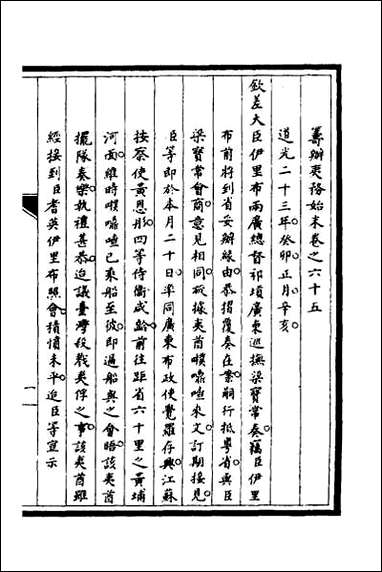 籌辦夷務始末卷之六十五
道光二十三年癸卯正月辛亥
欽差大臣伊里布兩廣總督祁𡎴廣東巡撫梁寶常奏竊臣伊里
布前將到省妥辦緣由恭摺覆奏在案嗣行抵粵省與臣
梁寶常會商意見相同祗據夷酋噗嚹喳來文訂期接見
臣等即於本月二十日率同廣東布政使覺羅存興江蘇
按察使黃恩彤四等侍衛咸齡前往距省六十里之黃埔
河面維時噗嚹喳已乘船至彼即過船與之會晤該夷酋
擺隊奏樂執禮甚恭迨議臺灣殺戮夷俘之事該夷酋雖
經接到臣耆英伊里布照會積憤未平迨臣等宣示
一